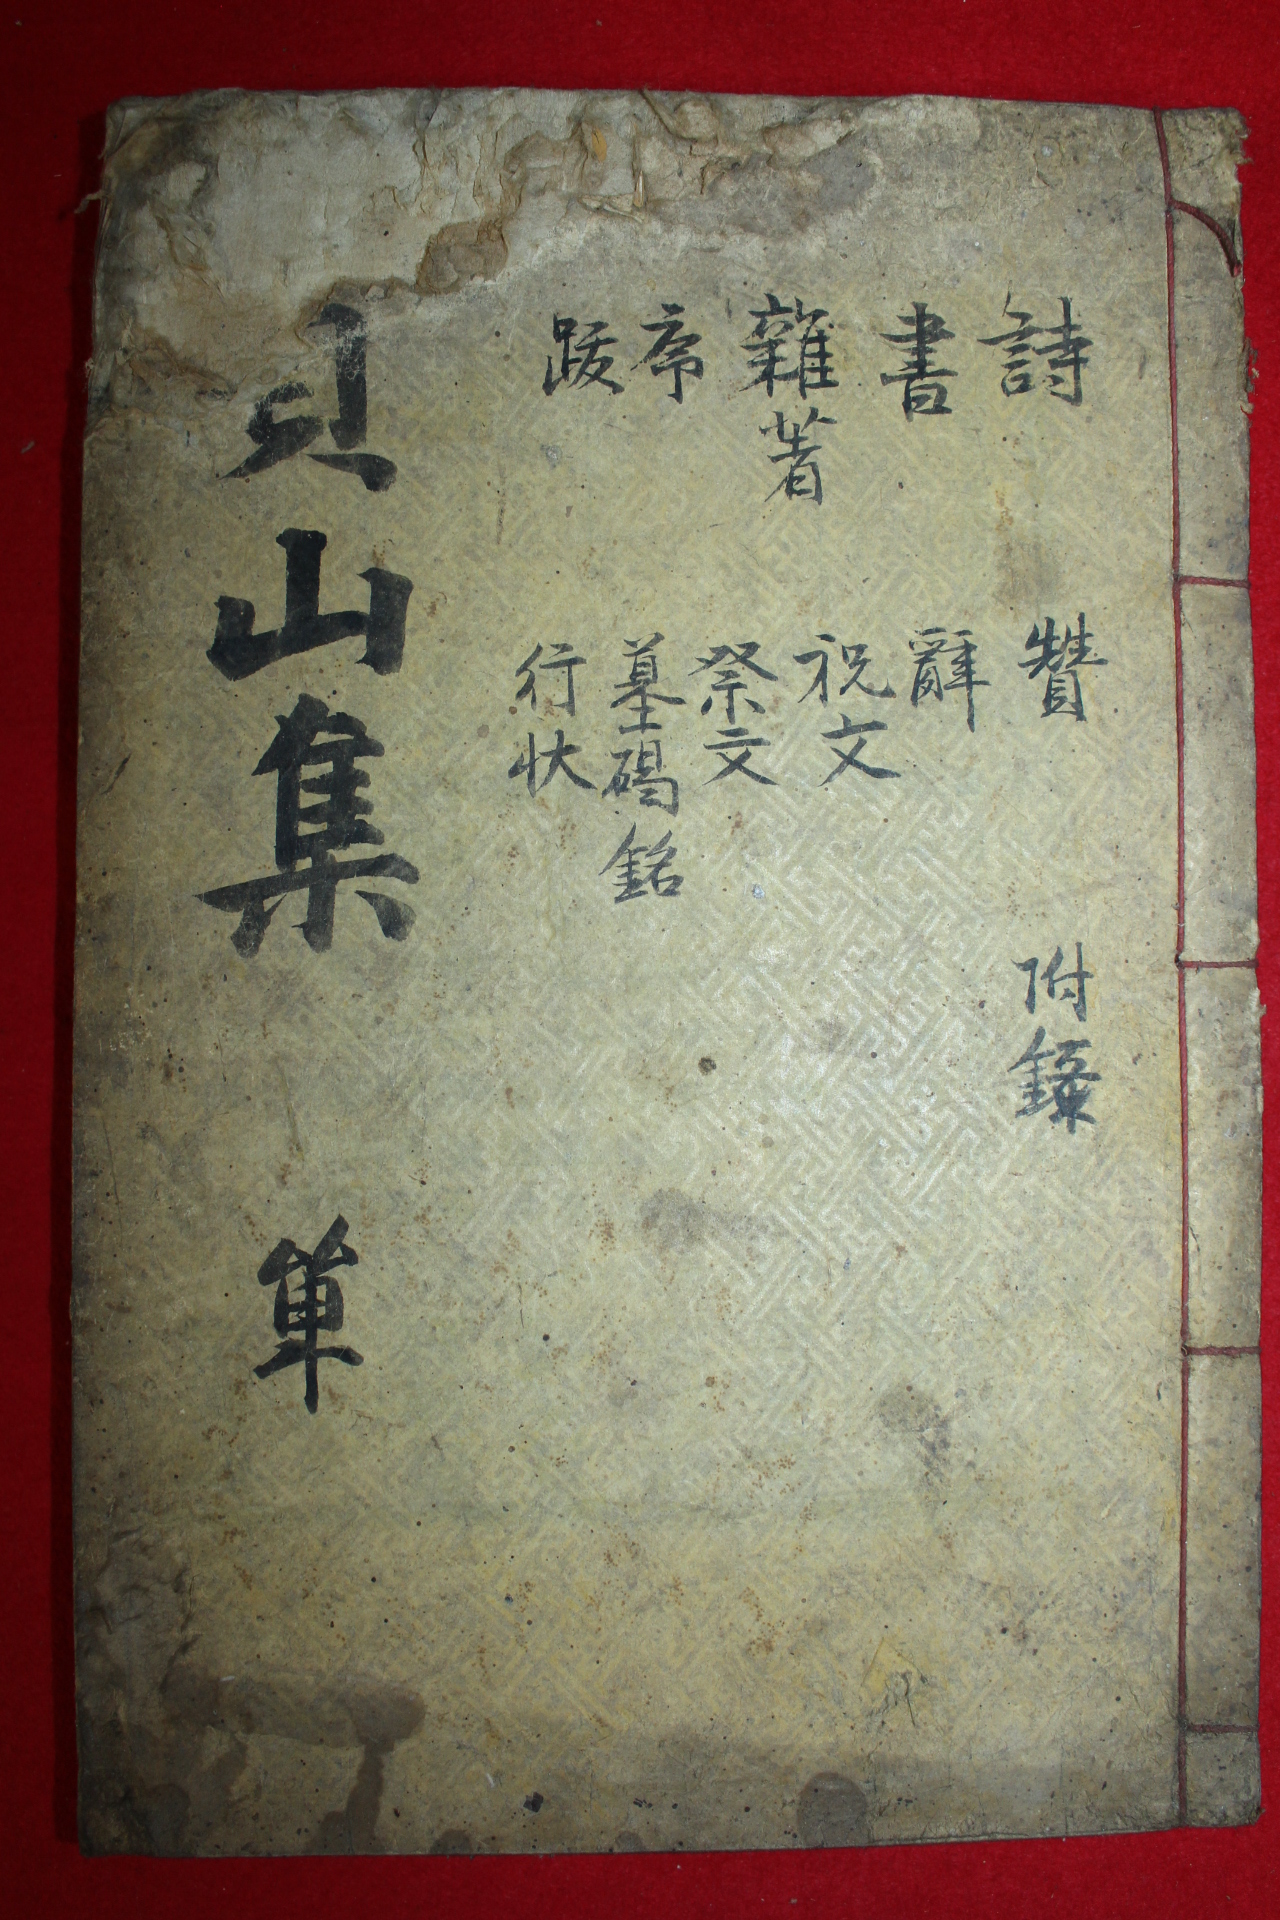 詩
書
雜著
序
跋
贊
辭
祝文
祭文
墓碣銘
行状
附錄
山集 單